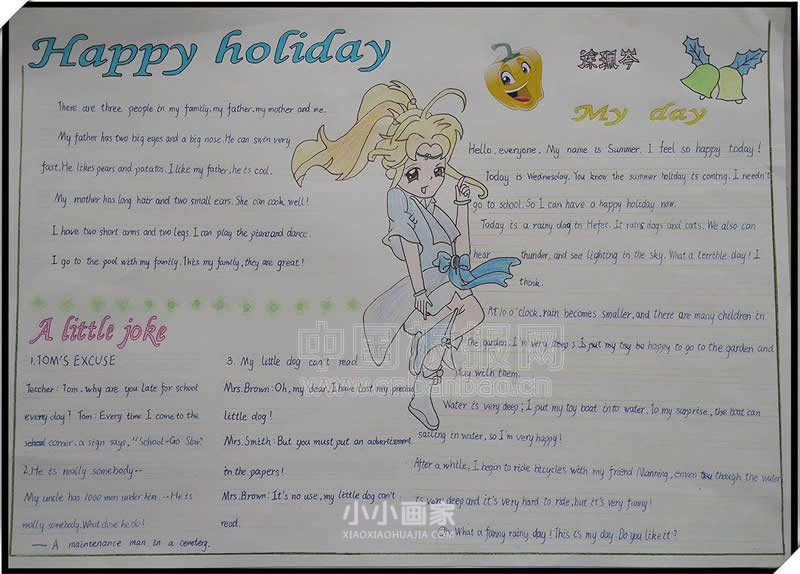 Happy holiday
There are three people in my family, my father, my mother and me.
My father has two big eyes and a big nose. He can swin very
fast. He likes pears and patatos. I like my father, he is cool.
My mother has long hair and two small ears. She can cook well!
I have two short arms and two legs. I can play the piano and dance.
I go to the pool with my family. This my family, they are great!
A little joke
1.TOM'S EXCUSE
Teacher: Tom, why are you late for school
every day? Tom: Every time I come to the
school corner, a sign says, "School-Go Slow".
2.He is really somebody--
My uncle has 1000 men under him. --He is
really somebody. What dose he do!
— A maintenance man in a cemetery.
3. My little dog can't read
Mrs.Brown: Oh, my dear, I have lost my precied
little dog!
Mrs.Smith: But you must put an advertisement
in the papers!
Mrs.Brown: It's no use, my little dog can't
read.
My day
Hello, everyone. My name is Summer. I feel so happy today!
Today is Wednesday. You know the summer holiday is coming. I needn't
go to school. So I can have a happy holiday now.
Today is a rainy day in Hefei. It rains dogs and cats. We also can
hear thunder, and see lighting in the sky. What a terrible day! I
think.
At 10 o'clock, rain becomes smaller, and there are many children in
the garden. I'm very I put my toy be happy to go to the garden and
play with them.
Water is very deep; I put my toy boat into water. To my surprise, the boat can
sailing in water, so I'm very happy!
After a while, I begin to ride bicycles with my friend enven though the water
is very deep and it's very hard to ride, but it's very funny!
Oh, What a funny rainy day! This is my day. Do you like it?
小小画家
XIAOXIAOHUAJIA.COM